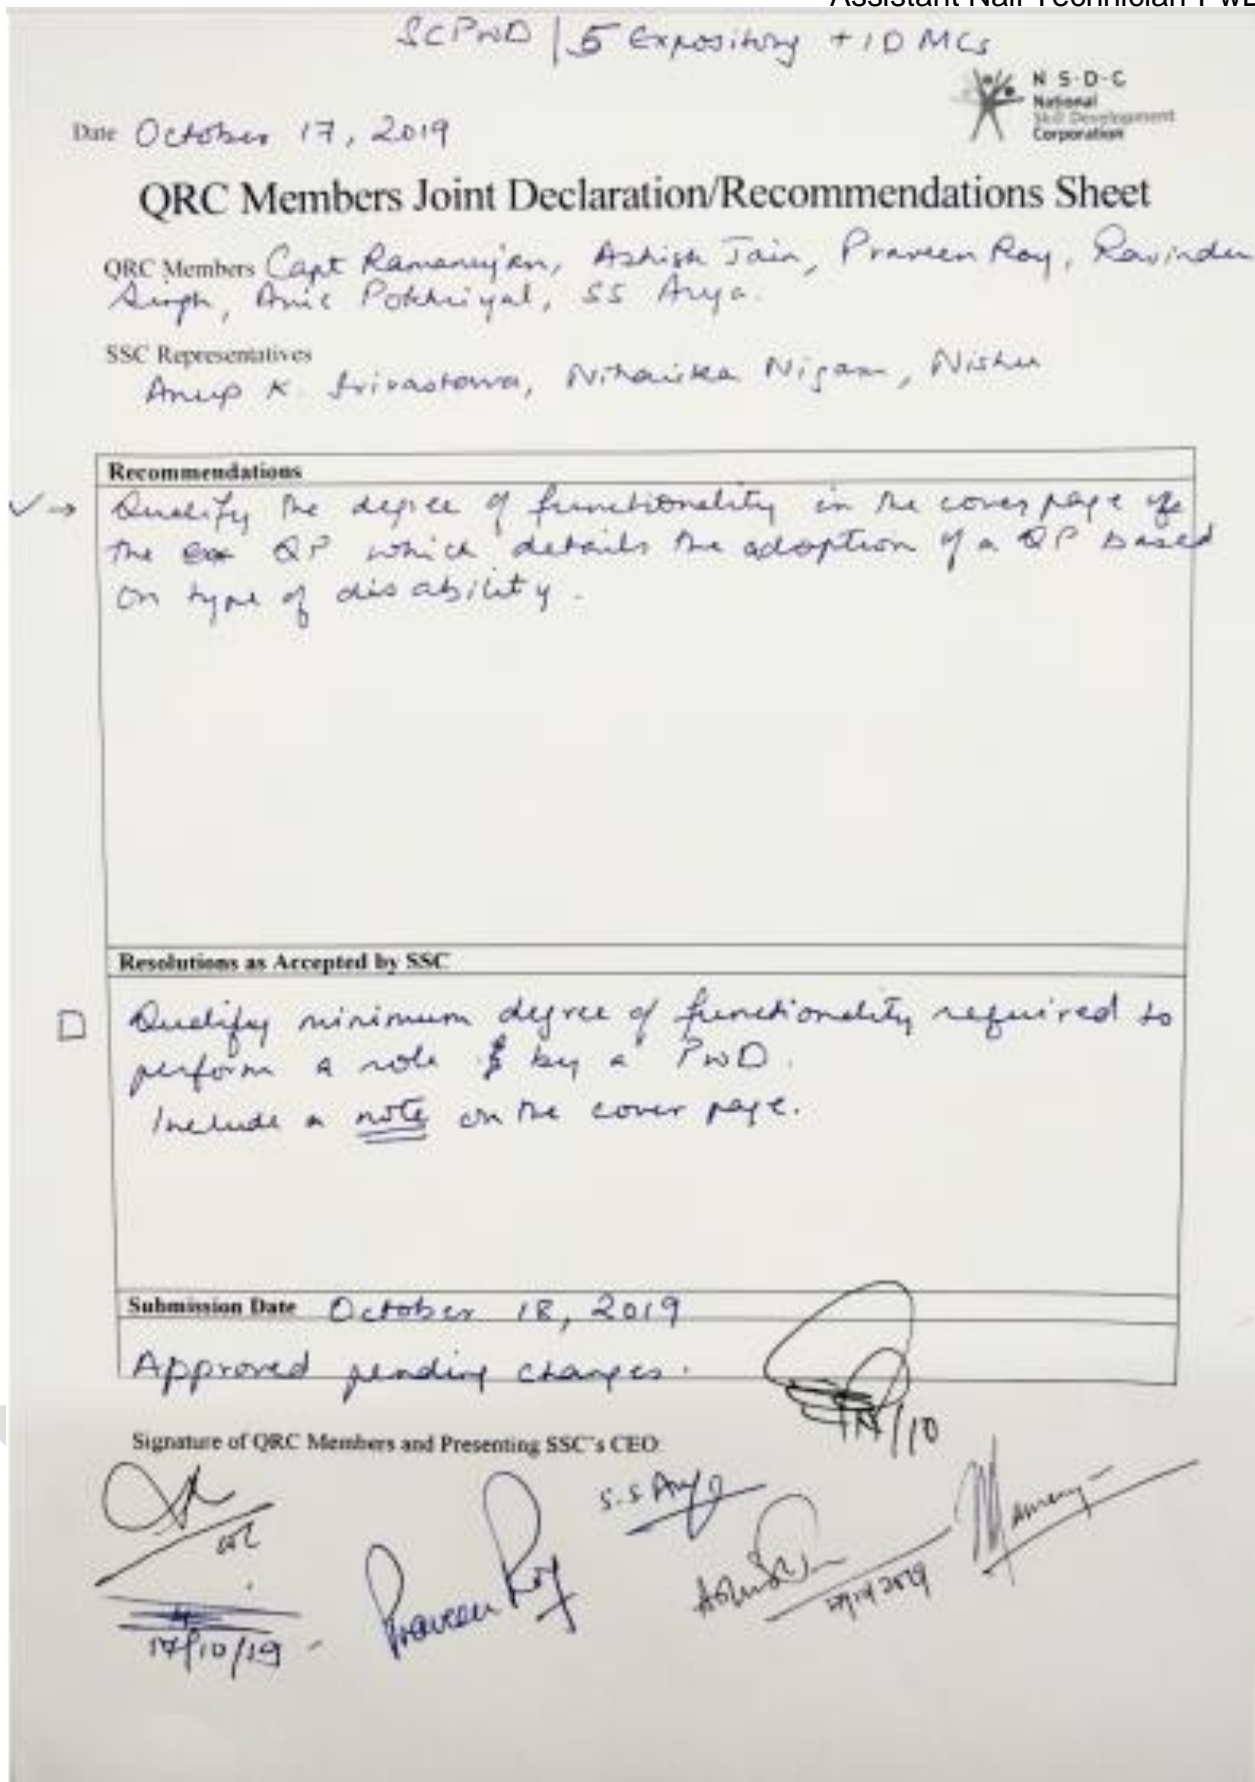 Assistant Nail Technician
SCPwD | 5 Expository + ID MCs
N·S·D·C
National
Skill Development
Corporation
Date October 17, 2019
QRC Members Joint Declaration/Recommendations Sheet
QRC Members Capt Ramanujan, Ashish Jain, Praveen Roy, Ravinder
Singh, Pokhriyal, SS Arya.
SSC Representatives
Anup K. Srivastava, Niharika Nigam, Nishu
Recommendations
✓ → Qualify the degree of functionality in the cover page of
the QP which details the adoption of a QP based
on type of disability.
Resolutions as Accepted by SSC
Qualify minimum degree of functionality required to
perform a role by a PwD.
Include a note on the cover page.
Submission Date October 18, 2019
Approved pending changes.
Signature of QRC Members and Presenting SSC's CEO:
S.S Arya
Praveen Roy
17/10/2019
17/10/19